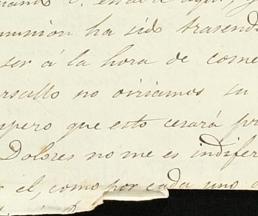 ha sido trasend
ser á la hora de come
no oiriamos su
mpero que esto cesará pr
Dolores no me es indifer
r el, como por cada uno d